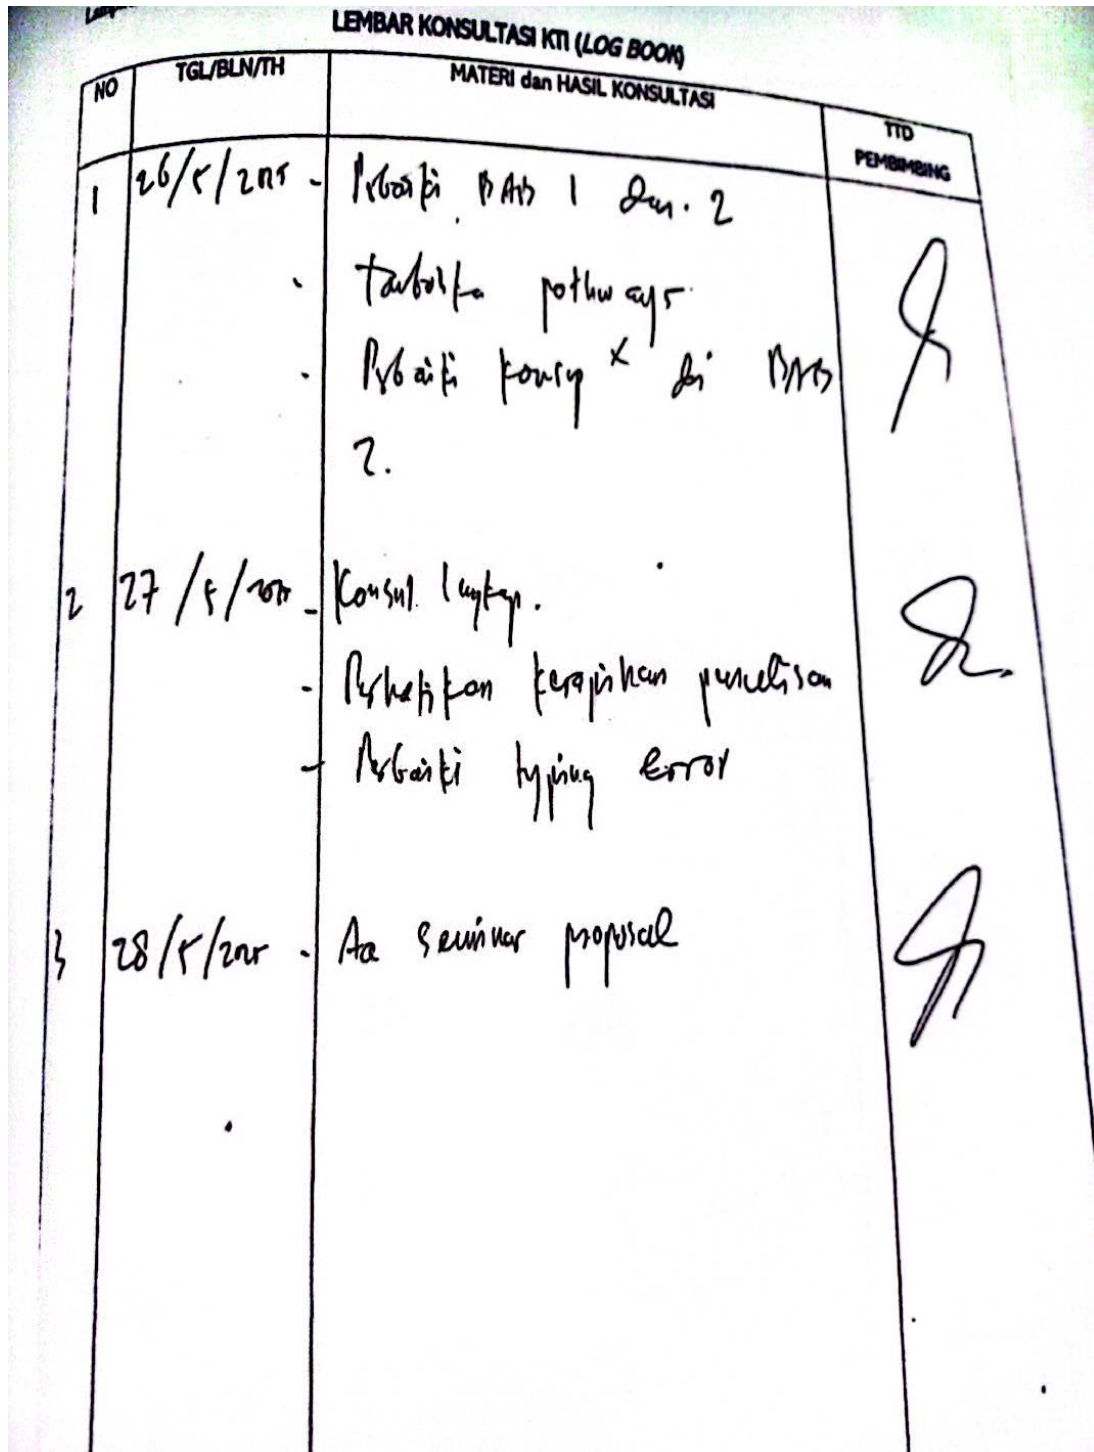 LEMBAR KONSULTASI KTI (LOG BOOK)
NO TGL/BLN/TH MATERI dan HASIL KONSULTASI TTD PEMBIMBING
1 26/5/2025 - Perbaiki BAB 1 dan 2
- pathways
- Perbaiki konsep x di BAB
2.
2 27/5/2025 - Konsul lengkap.
- Perhatikan kerapihan penulisan
- Perbaiki typing error
3 28/5/2025 - Acc seminar proposal